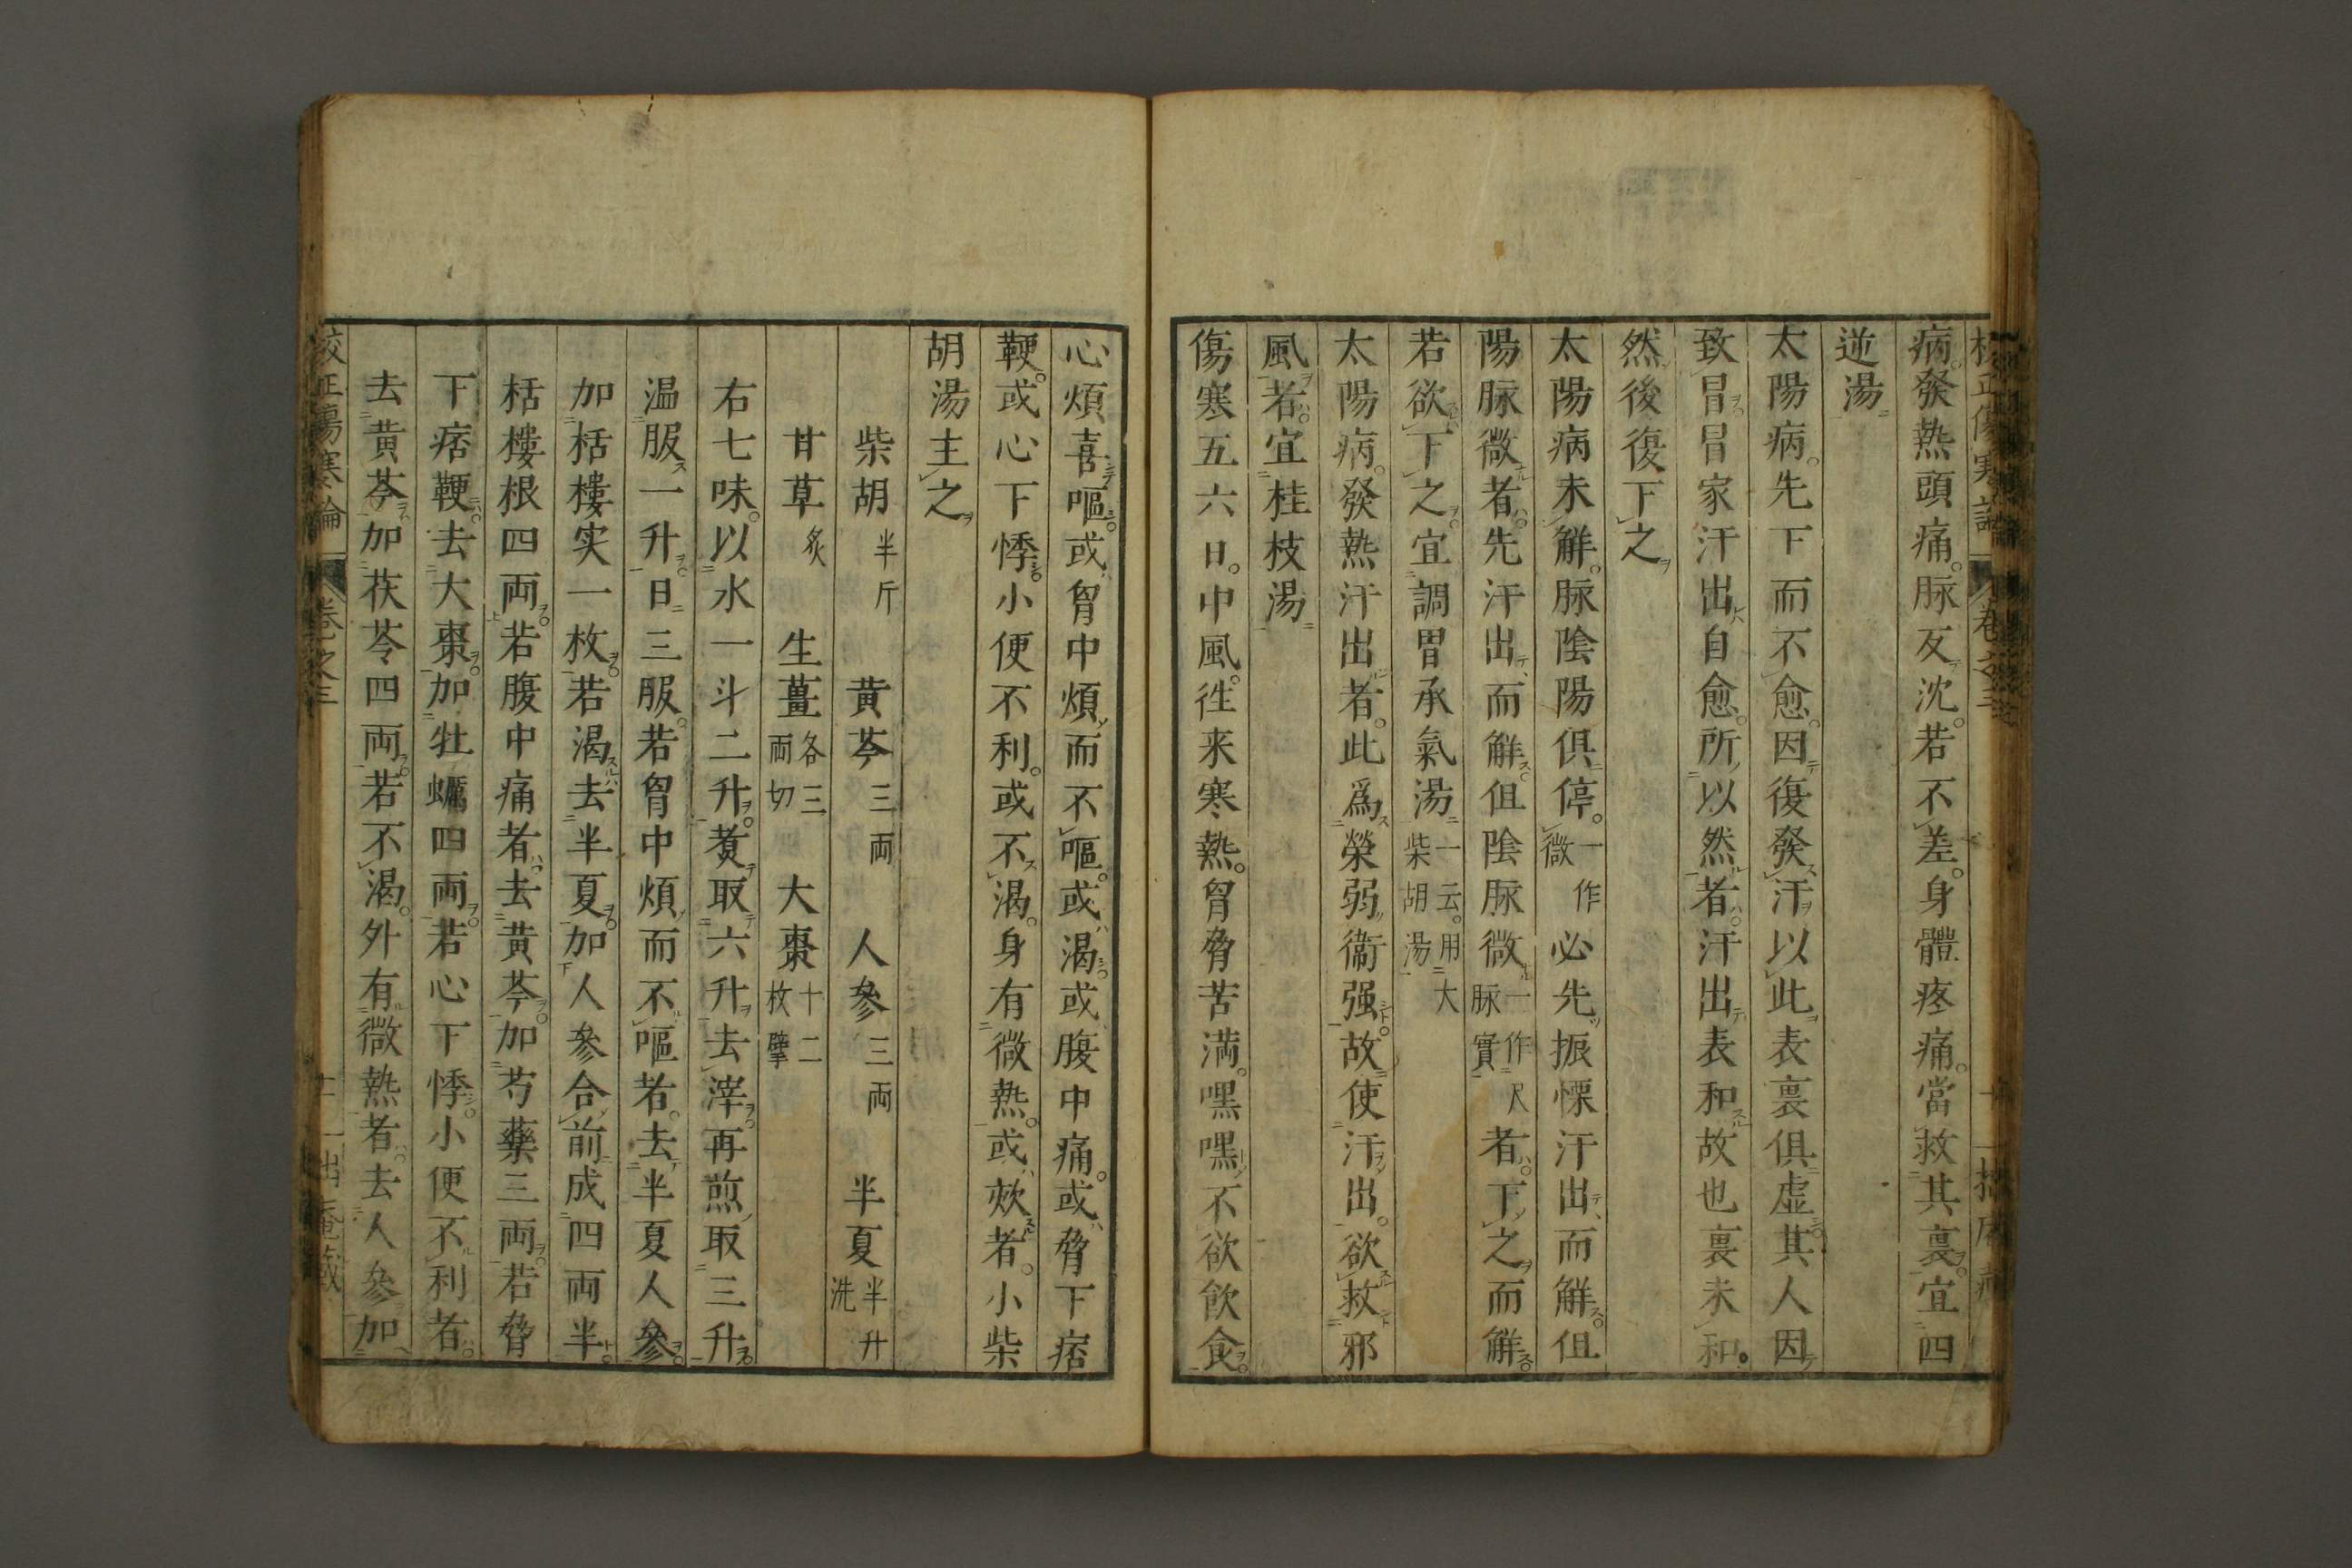 病。發熱頭痛。脉反沈。若不差。身體疼痛。當救其裏。宜四
逆湯
太陽病。先下而不愈。因復發汗以此表裏俱虚其人因
致冒。冒家汗出自愈。所以然者。汗出表和故也裏未和。
然後復下之
太陽病未解。脉陰陽俱停。一作微必先振慄汗出而解。但
陽脉微者。先汗出而解。但陰脉微一作尺脉實者。下之而解。
若欲下之。宜調胃承氣湯一云。用大柴胡湯
太陽病。發熱汗出者。此爲榮弱衞强。故使汗出。欲救邪
風者。宜桂枝湯
傷寒五六日。中風。徃来寒熱。胷脅苦満。嘿嘿不欲飲食。
心煩喜嘔。或胷中煩而不嘔。或渴。或腹中痛。或脅下痞
鞕。或心下悸。小便不利。或不渴。身有微熱。或欬者。小柴
胡湯主之
柴胡半斤 黄芩三両 人參三両 半夏半升洗
甘草炙 生薑各三両切 大棗十二枚擘
右七味。以水一斗二升。煑取六升去滓。再煎取三升。
温服一升。日三服。若胷中煩而不嘔者。去半夏人參。
加栝樓実一枚。若渴去半夏。加人參合前成四両半。
栝樓根四両。若腹中痛者。去黄芩。加芍藥三両。若脅
下痞鞕。去大棗。加牡蠣四両。若心下悸。小便不利者。
去黄芩。加茯苓四両。若不渴。外有微熱者。去人參加
校正傷寒論 卷之三